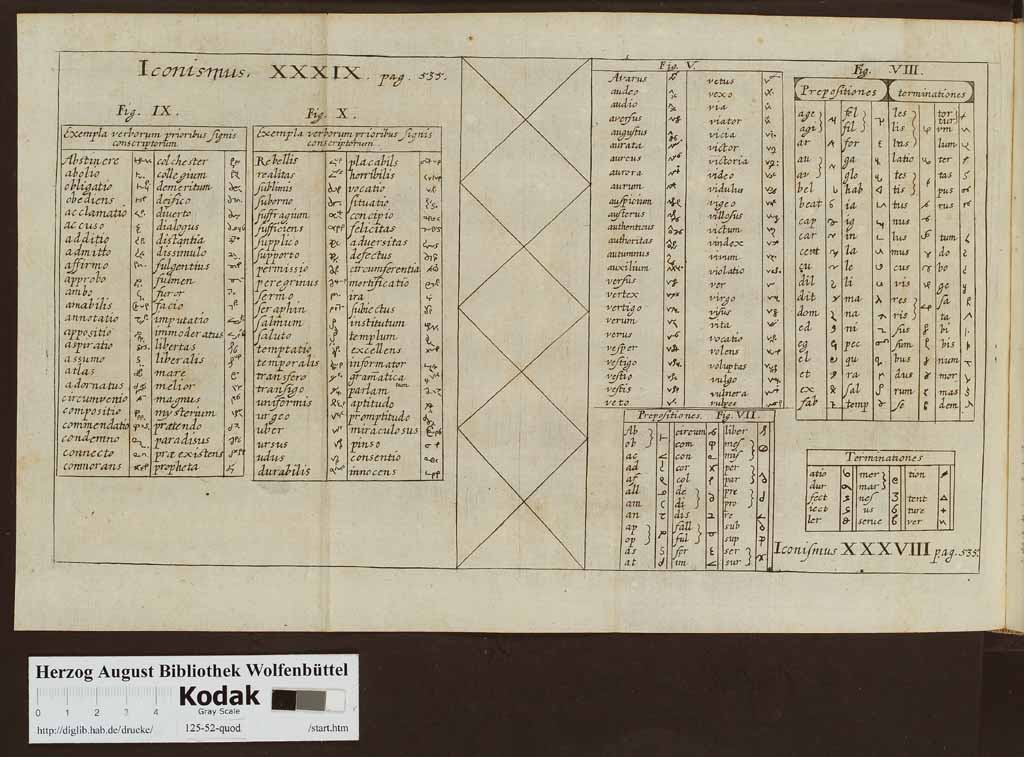 Iconismus. XXXIX. pag. 535.
Fig. IX.
Exempla verborum prioribus signis
conscriptorum
Abstinere colchester
abolio collegium
obligatio demeritum
obediens deifico
acclamatio diuerto
accuso dialogus
additio distantia
admitto dissimulo
affirmo fulgentius
approbo fulmen
ambo furor
amabilis facio
annotatio imputatio
appositio immoderatus
aspiratio libertas
assumo liberalis
atlas mare
adornatus melior
circumvenio magnus
compositio mysterium
commendatio prætendo
condemno paradisus
connecto præexistens
commorans propheta
Fig. X.
Exempla verborum prioribus signis
conscriptorum.
Rebellis placabils
realitas horribilis
sublimis vocatio
suborno situatio
suffragium concipio
sufficiens felicitas
supplico aduersitas
supporto defectus
permissio circumferentia
peregrinus mortificatio
sermo ira
seraphin subiectus
salinium institutum
saluto templum
temptatio excellens
temporalis informator
transfero gramatica
transigo parlamtum
uniformis aptitudo
urgeo promptitudo
uber miraculosus
ursus pinso
udus consentio
durabilis innocens
Fig. V.
Avarus vetus
audeo vexo
audio via
aversus viator
augustus vicia
aurata victor
aureus victoria
aurora video
aurum vidulus
auspicium vigeo
austerus villosus
authenticus victum
authoritas vindex
autumnus vivum
auxilium violatio
versus ver
vertex virgo
vertigo visus
verum vita
verus vocatio
vesper volens
vestigo voluptas
vestio vulgo
vestis vulnera
veto vulpes
Prepositiones. Fig. VII.
Ab circum liber
ob com mes
ac con mis
ad cor per
af col par
all de pre
am di pro
an dis re
ap fall sub
op ful sup
as for ser
at im sur
Fig. VIII.
Prepositiones terminationes
age fel les tor
agi fil lis vm tur
ar for bas lum
au ga latio ter
av glo tes tas
bel hab tis pus
beat ia tus rus
cap ig nus
car in lus tum
cent la mus do
cu le cus bo
dil li vis ge
dit ma res sa
dom na ris ta
ed ni sus bi
eg pec sum bis
el qu bus num
et ra dus mor
ex sal rum mas
fab temp se dem
Terminationes
atio mer tion
dur mar
fect nes tent
iect us ture
ler serue ver
Iconismus XXXVIII pag. 535.
Herzog August Bibliothek Wolfenbüttel
0 1 2 3 4
Kodak
Gray Scale
http://diglib.hab.de/drucke/ 125-52-quod /start.htm